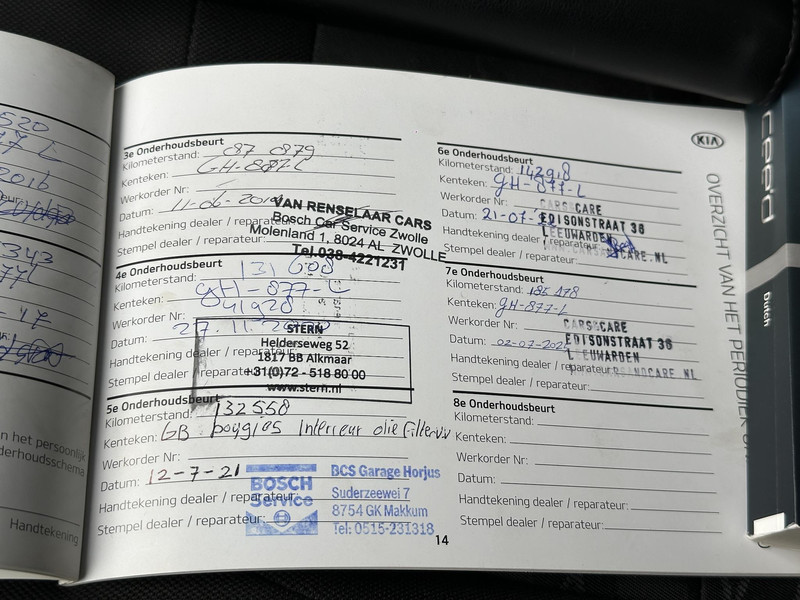 520
L
2016
343
17
n het persoonlijk
derhoudsschema
Handtekening
3e Onderhoudsbeurt
Kilometerstand: 087 0879
Kenteken: GH-877-L
Werkorder Nr:
Datum: 11-06-
Handtekening dealer / reparateur:
Stempel dealer / reparateur:
VAN RENSELAAR CARS
Bosch Car Service Zwolle
Molenland 1, 8024 AL ZWOLLE
Tel.038-4221231
4e Onderhoudsbeurt
Kilometerstand: 131 608
Kenteken: GH-877-L
Werkorder Nr: 41928
Datum: 27.11.
Handtekening dealer / reparateur:
Stempel dealer / reparateur:
STERN
Helderseweg 52
1817 BB Alkmaar
+31(0)72 - 518 80 00
www.stern.nl
5e Onderhoudsbeurt
Kilometerstand: 132558
Kenteken: GB. bougies Interieur olie Filter
Werkorder Nr:
Datum: 12-7-21
Handtekening dealer / reparateur:
Stempel dealer / reparateur:
BOSCH
Service
BCS Garage Horjus
Suderzeewei 7
8754 GK Makkum
Tel: 0515-231318
14
KIA
6e Onderhoudsbeurt
Kilometerstand: 142918
Kenteken: GH-877-L
Werkorder Nr:
Datum: 21-07-
Handtekening dealer / reparateur:
Stempel dealer / reparateur:
CARS&CARE
EDISONSTRAAT 36
LEEUWARDEN
CARSANDCARE.NL
7e Onderhoudsbeurt
Kilometerstand: 185 478
Kenteken: GH-877-L
Werkorder Nr:
Datum: 02-07-202
Handtekening dealer / reparateur:
Stempel dealer / reparateur:
CARS&CARE
EDISONSTRAAT 36
LEEUWARDEN
CARSANDCARE.NL
8e Onderhoudsbeurt
Kilometerstand:
Kenteken:
Werkorder Nr:
Datum:
Handtekening dealer / reparateur:
Stempel dealer / reparateur:
OVERZICHT VAN HET PERIODIEK
cee'd
Dutch